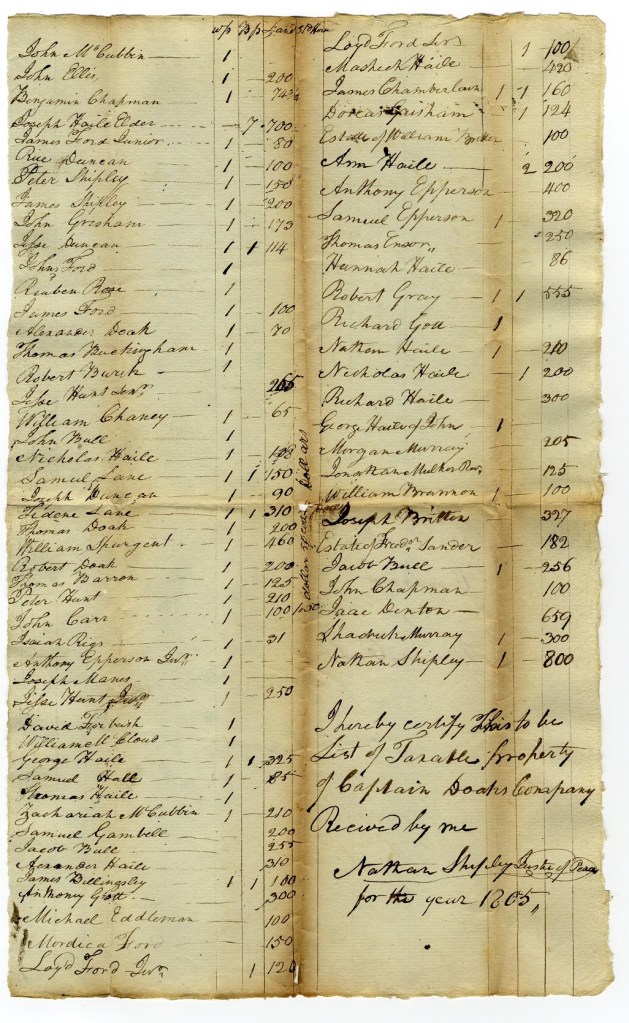 w/p B/p Land St Hors
John McCubbin 1
John Ellis 1 200
Benjamin Chapman 1 74 3/4
Joseph Haile Elder 7 700
James Ford Junior 1 80
Rice Duncan 1 100
Peter Shipley 1 150
James Shipley 1 200
John Gresham 1 173
Jesse Duncan 1 1 114
John Ford 1
Reuben Rose 1
James Ford 1 100
Alexander Doak 1 70
Thomas Buckingham 1
Robert Burk 1
Jesse Hunt Senr. 265
William Chaney 1 65
John Bull 1
Nicholas Haile 1 108
Samuel Lane 1 1 150
Joseph Duncan 1 90
Tidene Lane 1 1 310
Thomas Doak 1 200
William Spurgent 1 460
Robert Doak 1 200
Thomas Barron 1 125
Peter Hunt 1 210
John Carr 1 100
Isaiah Rigs 1 31
Anthony Epperson Junr. 1
Joseph Manes 1
Jesse Hunt Junr. 1 250
David Forbush 1
William McCloud 1
George Haile 1 1 325
Samuel Hall 1 85
Thomas Haile 1
Zachariah McCubbin 1 210
Samuel Gambell 200
Jacob Bull 255
Alexander Haile 310
James Billingsley 1 1 100
Anthony Gott 300
Michael Eddleman 100
Mordica Ford 150
Loyd Ford Junr. 1 120
dollars
Loyd Ford Senr 1 100
Mashech Haile 420
James Chamberlain 1 1 160
Dorcas Grisham 1 124
Estate of William Britten 100
Ann Haile 2 200
Anthony Epperson 400
Samuel Epperson 1 320
Thomas Ensor 250
Hannah Haile 86
Robert Gray 1 1 555
Richard Gott 1
Nathan Haile 1 210
Nicholas Haile 1 200
Richard Haile 300
George Haile of John 1
Morgan Murray 205
Jonathan Mulkey 125
William Brannon 1 100
Joseph Britten 327
Estate of Fredr. Sander 182
Jacob Bull 1 256
John Chapman 100
Isaac Denton 659
Shadrick Murray 1 300
Nathan Shipley 1 800
I hereby certify This to be
List of Taxable property
of Captain Doaks Company
Recived by me
Nathan Shipley Justice of Peace
for the year 1805